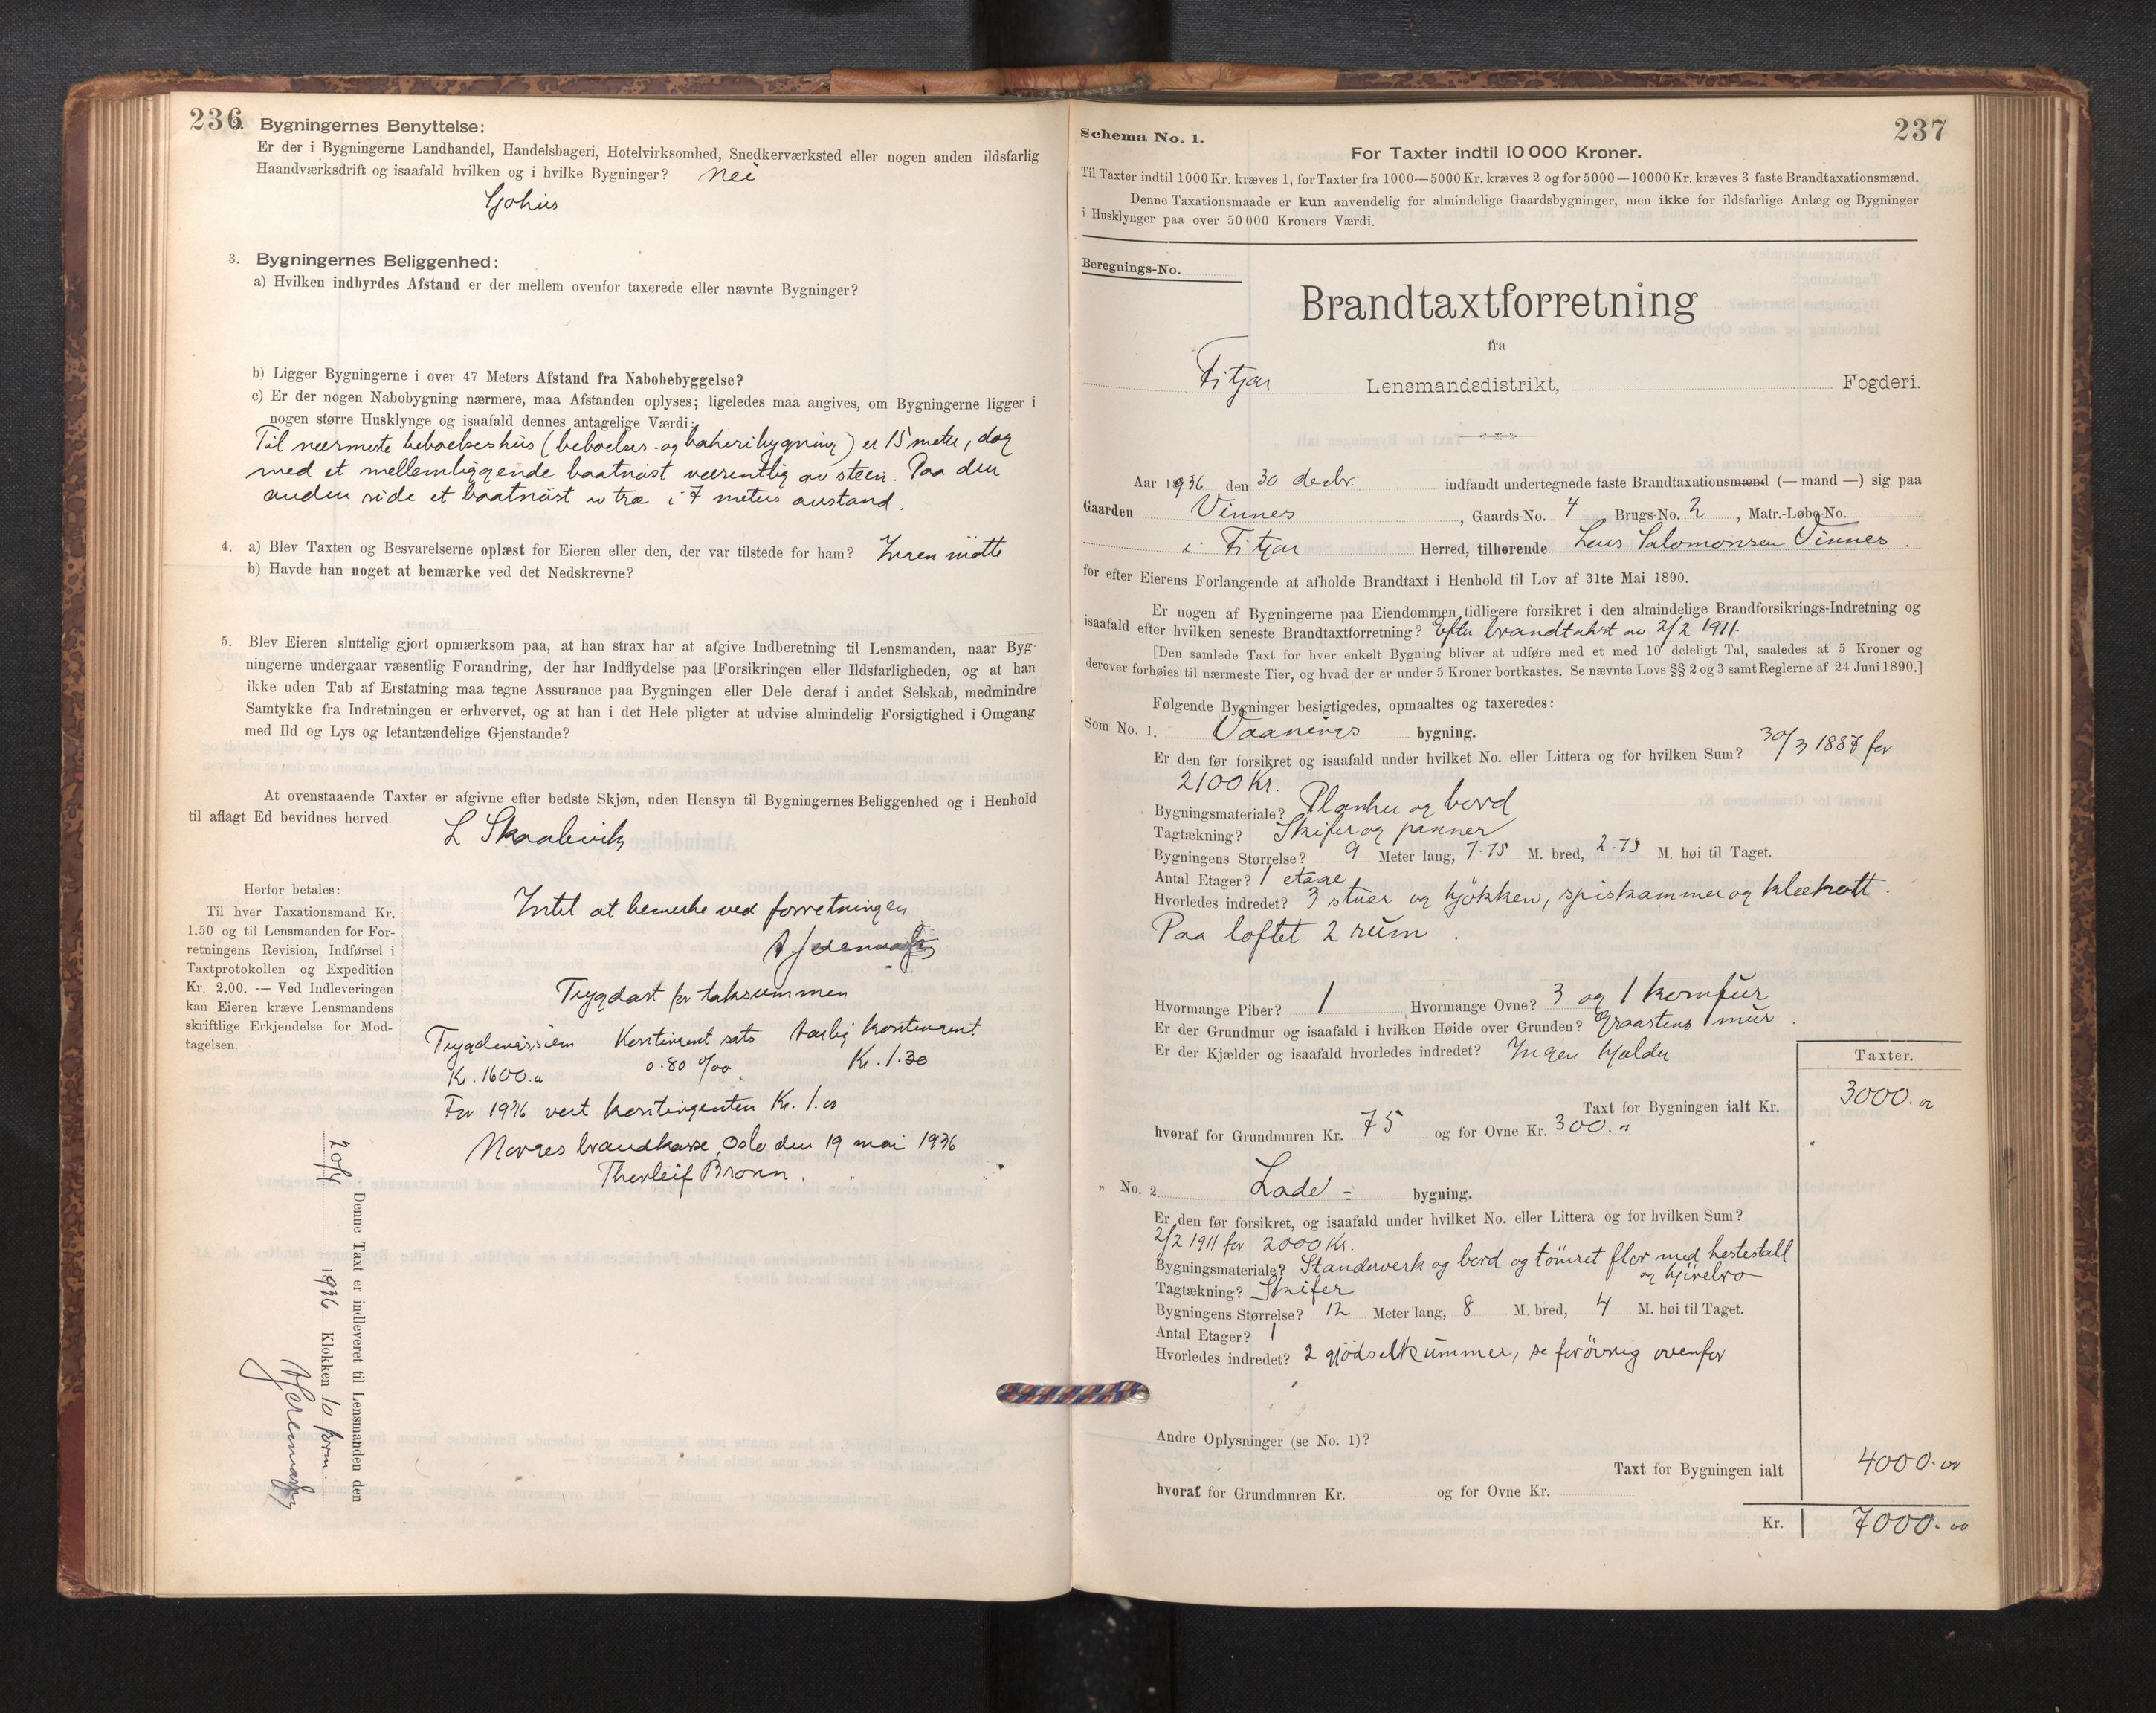 236
2. Bygningernes Benyttelse:
Er der i Bygningerne Landhandel, Handelsbageri, Hotelvirksomhed, Snedkerværksted eller nogen anden ildsfarlig
Haandværksdrift og isaafald hvilken og i hvilke Bygninger? nei
Sjøhus
3. Bygningernes Beliggenhed:
a) Hvilken indbyrdes Afstand er der mellem ovenfor taxerede eller nævnte Bygninger?
b) Ligger Bygningerne i over 47 Meters Afstand fra Nabobebyggelse?
c) Er der nogen Nabobygning nærmere, maa Afstanden oplyses; ligeledes maa angives, om Bygningerne ligger i
nogen større Husklynge og isaafald dennes antagelige Værdi:
Til nærmeste beboelseshus (beboelses- og bakeribygning) er 15 meter, dog
med et mellemliggende baatnøst væsentlig av steen. Paa den
anden side et baatnøst av træ i 7 meters avstand.
4. a) Blev Taxten og Besvarelserne oplæst for Eieren eller den, der var tilstede for ham? Ingen møtte
b) Havde han noget at bemærke ved det Nedskrevne?
5. Blev Eieren sluttelig gjort opmærksom paa, at han strax har at afgive Indberetning til Lensmanden, naar Byg-
ningerne undergaar væsentlig Forandring, der har Indflydelse paa Forsikringen eller Ildsfarligheden, og at han
ikke uden Tab af Erstatning maa tegne Assurance paa Bygningen eller Dele deraf i andet Selskab, medmindre
Samtykke fra Indretningen er erhvervet, og at han i det Hele pligter at udvise almindelig Forsigtighed i Omgang
med Ild og Lys og letantændelige Gjenstande?
At ovenstaaende Taxter er afgivne efter bedste Skjøn, uden Hensyn til Bygningernes Beliggenhed og i Henhold
til aflagt Ed bevidnes herved.
L Skaalevik
Herfor betales:
Til hver Taxationsmand Kr.
1.50 og til Lensmanden for For-
retningens Revision, Indførsel i
Taxtprotokollen og Expedition
Kr. 2.00. — Ved Indleveringen
kan Eieren kræve Lensmandens
skriftlige Erkjendelse for Mod-
tagelsen.
Intet at bemerke ved forretningen
Trygdart for taksummen
Trygdenissum Kontingent sats Aarlig kontingent
Kr. 1600.- 0.80 ‰ Kr. 1.30
For 1936 vert kontingenten Kr. 1.00
Norges brandkasse, Oslo den 19 mai 1936
Thorleif Bronn.
Denne Taxt er indleveret til Lensmanden den
20/4 1936 Klokken 10 form.
237
Schema No. 1.
For Taxter indtil 10 000 Kroner.
Til Taxter indtil 1000 Kr. kræves 1, for Taxter fra 1000—5000 Kr. kræves 2 og for 5000—10000 Kr. kræves 3 faste Brandtaxationsmænd.
Denne Taxationsmaade er kun anvendelig for almindelige Gaardsbygninger, men ikke for ildsfarlige Anlæg og Bygninger
i Husklynger paa over 50 000 Kroners Værdi.
Beregnings-No.
Brandtaxtforretning
fra
Fitjar Lensmandsdistrikt, Fogderi.
Aar 1936 den 30 decbr. indfandt undertegnede faste Brandtaxationsmænd (— mand —) sig paa
Gaarden Vinnes, Gaards-No. 4 Brugs-No. 2, Matr.-Løbe-No.
i Fitjar Herred, tilhørende Lars Salomonsen Vinnes.
for efter Eierens Forlangende at afholde Brandtaxt i Henhold til Lov af 31te Mai 1890.
Er nogen af Bygningerne paa Eiendommen tidligere forsikret i den almindelige Brandforsikrings-Indretning og
isaafald efter hvilken seneste Brandtaxtforretning? Efter brandtakst av 2/2 1911.
[Den samlede Taxt for hver enkelt Bygning bliver at udføre med et med 10 deleligt Tal, saaledes at 5 Kroner og
derover forhøies til nærmeste Tier, og hvad der er under 5 Kroner bortkastes. Se nævnte Lovs §§ 2 og 3 samt Reglerne af 24 Juni 1890.]
Følgende Bygninger besigtigedes, opmaaltes og taxeredes:
Som No. 1. Vaanings bygning.
Er den før forsikret og isaafald under hvilket No. eller Littera og for hvilken Sum? 30/3 1887 for
2100 Kr.
Bygningsmateriale? Planker og bord
Tagtækning? Skifer og panner
Bygningens Størrelse? 9 Meter lang, 7.75 M. bred, 2.75 M. høi til Taget.
Antal Etager? 1 etage
Hvorledes indredet? 3 stuer og kjøkken, spiskammer og klækott.
Paa loftet 2 rum.
Hvormange Piber? 1 Hvormange Ovne? 3 og 1 komfur
Er der Grundmur og isaafald i hvilken Høide over Grunden? Graastens mur.
Er der Kjælder og isaafald hvorledes indredet? Ingen kjælder
Taxter.
Taxt for Bygningen ialt Kr. 3000.00
hvoraf for Grundmuren Kr. 75 og for Ovne Kr. 300.-
„ No. 2 Lade - bygning.
Er den før forsikret, og isaafald under hvilket No. eller Littera og for hvilken Sum?
2/2 1911 for 2000 Kr.
Bygningsmateriale? Standerverk og bord og tømret flor med hestestall
og kjørebro
Tagtækning? Skifer
Bygningens Størrelse? 12 Meter lang, 8 M. bred, 4 M. høi til Taget.
Antal Etager? 1
Hvorledes indredet? 2 gjødselkummer, se forøvrig ovenfor
Andre Oplysninger (se No. 1)?
Taxt for Bygningen ialt 4000.00
hvoraf for Grundmuren Kr. og for Ovne Kr.
Kr. 7000.00